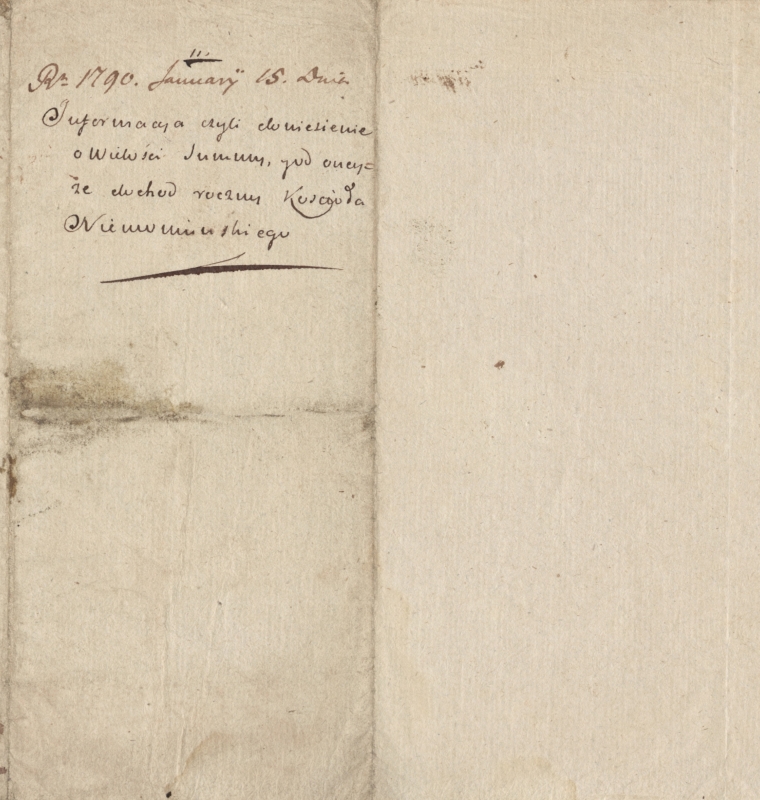 Ru 1790. January 15. Dnia
Informacya czyli doniesienie
o Wielości Summy, y od oney=
że dochod roczny Kościoła
Niemonińskiego